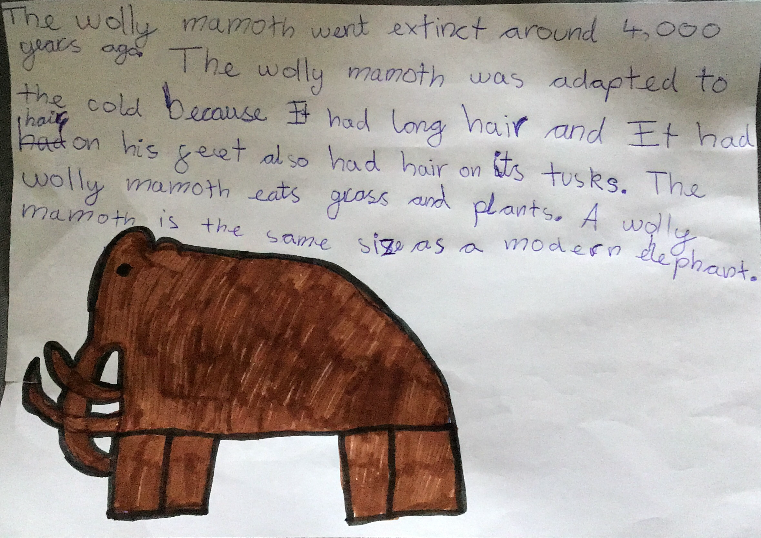 The wolly mamoth went extinct around 4,000
years ago. The wolly mamoth was adapted to
the cold because It had long hair and It had
hair on his feet also had hair on its tusks. The
wolly mamoth eats grass and plants. A wolly
mamoth is the same size as a modern elephant.